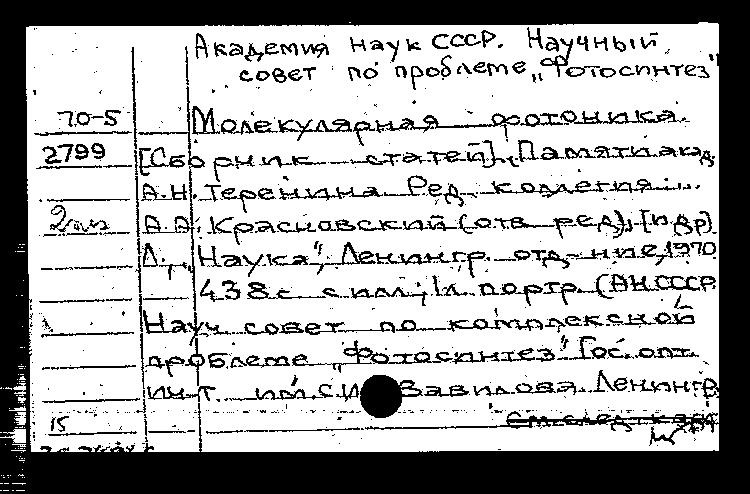 Академия наук СССР. Научный
совет по проблеме „Фотосинтез"
70-5 Молекулярная фотоника.
2799 [Сборник статей]. Памяти акад.
А.Н. Теренина. Ред. коллегия:..
А.А. Красновский (отв. ред), [и др]
Л., „Наука", Ленингр. отд-ние, 1970
438 с. с ил.; 1 л. портр. (АН СССР
Науч. совет по комплексной
проблеме „Фотосинтез" Гос. опт.
ин-т. им. С.И. Вавилова. Ленингр
15 См. след. к